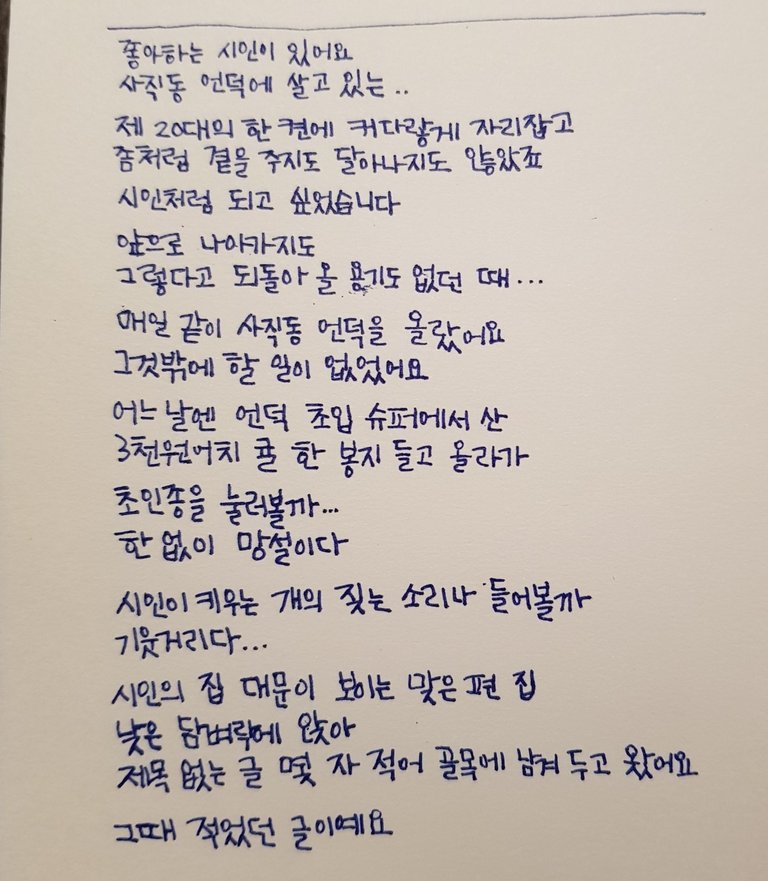 좋아하는 시인이 있어요
사직동 언덕에 살고 있는..
제 20대의 한 켠에 커다랗게 자리잡고
좀처럼 곁을 주지도 달아나지도 않았죠
시인처럼 되고 싶었습니다
앞으로 나아가지도
그렇다고 되돌아 올 용기도 없던 때...
매일 같이 사직동 언덕을 올랐어요
그것밖에 할 일이 없었어요
어느 날엔 언덕 초입 슈퍼에서 산
3천원어치 귤 한 봉지 들고 올라가
초인종을 눌러볼까...
한 없이 망설이다
시인이 키우는 개의 짖는 소리나 들어볼까
기웃거리다...
시인의 집 대문이 보이는 맞은 편 집
낮은 담벼락에 앉아
제목 없는 글 몇 자 적어 골목에 남겨 두고 왔어요
그때 적었던 글이예요